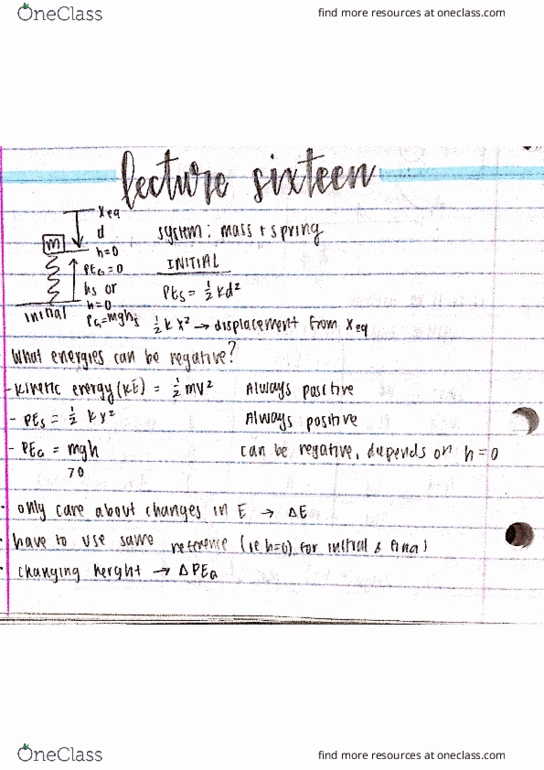 OneClass
find more resources at oneclass.com
lecture sixteen
xeq
d
m
h=0
system: mass + spring
PEG=0
INITIAL
hs or
h=0
PES = ½kd²
initial
PG=mghi
½kx² → displacement from xeq
What energies can be negative?
- kinetic energy (KE) = ½mv² Always positive
- PES = ½kx² Always positive
- PEG = mgh can be negative, depends on h=0
70
• only care about changes in E → ΔE
• have to use same reference (ie h=0) for initial & final)
• changing height → ΔPEG
OneClass
find more resources at oneclass.com